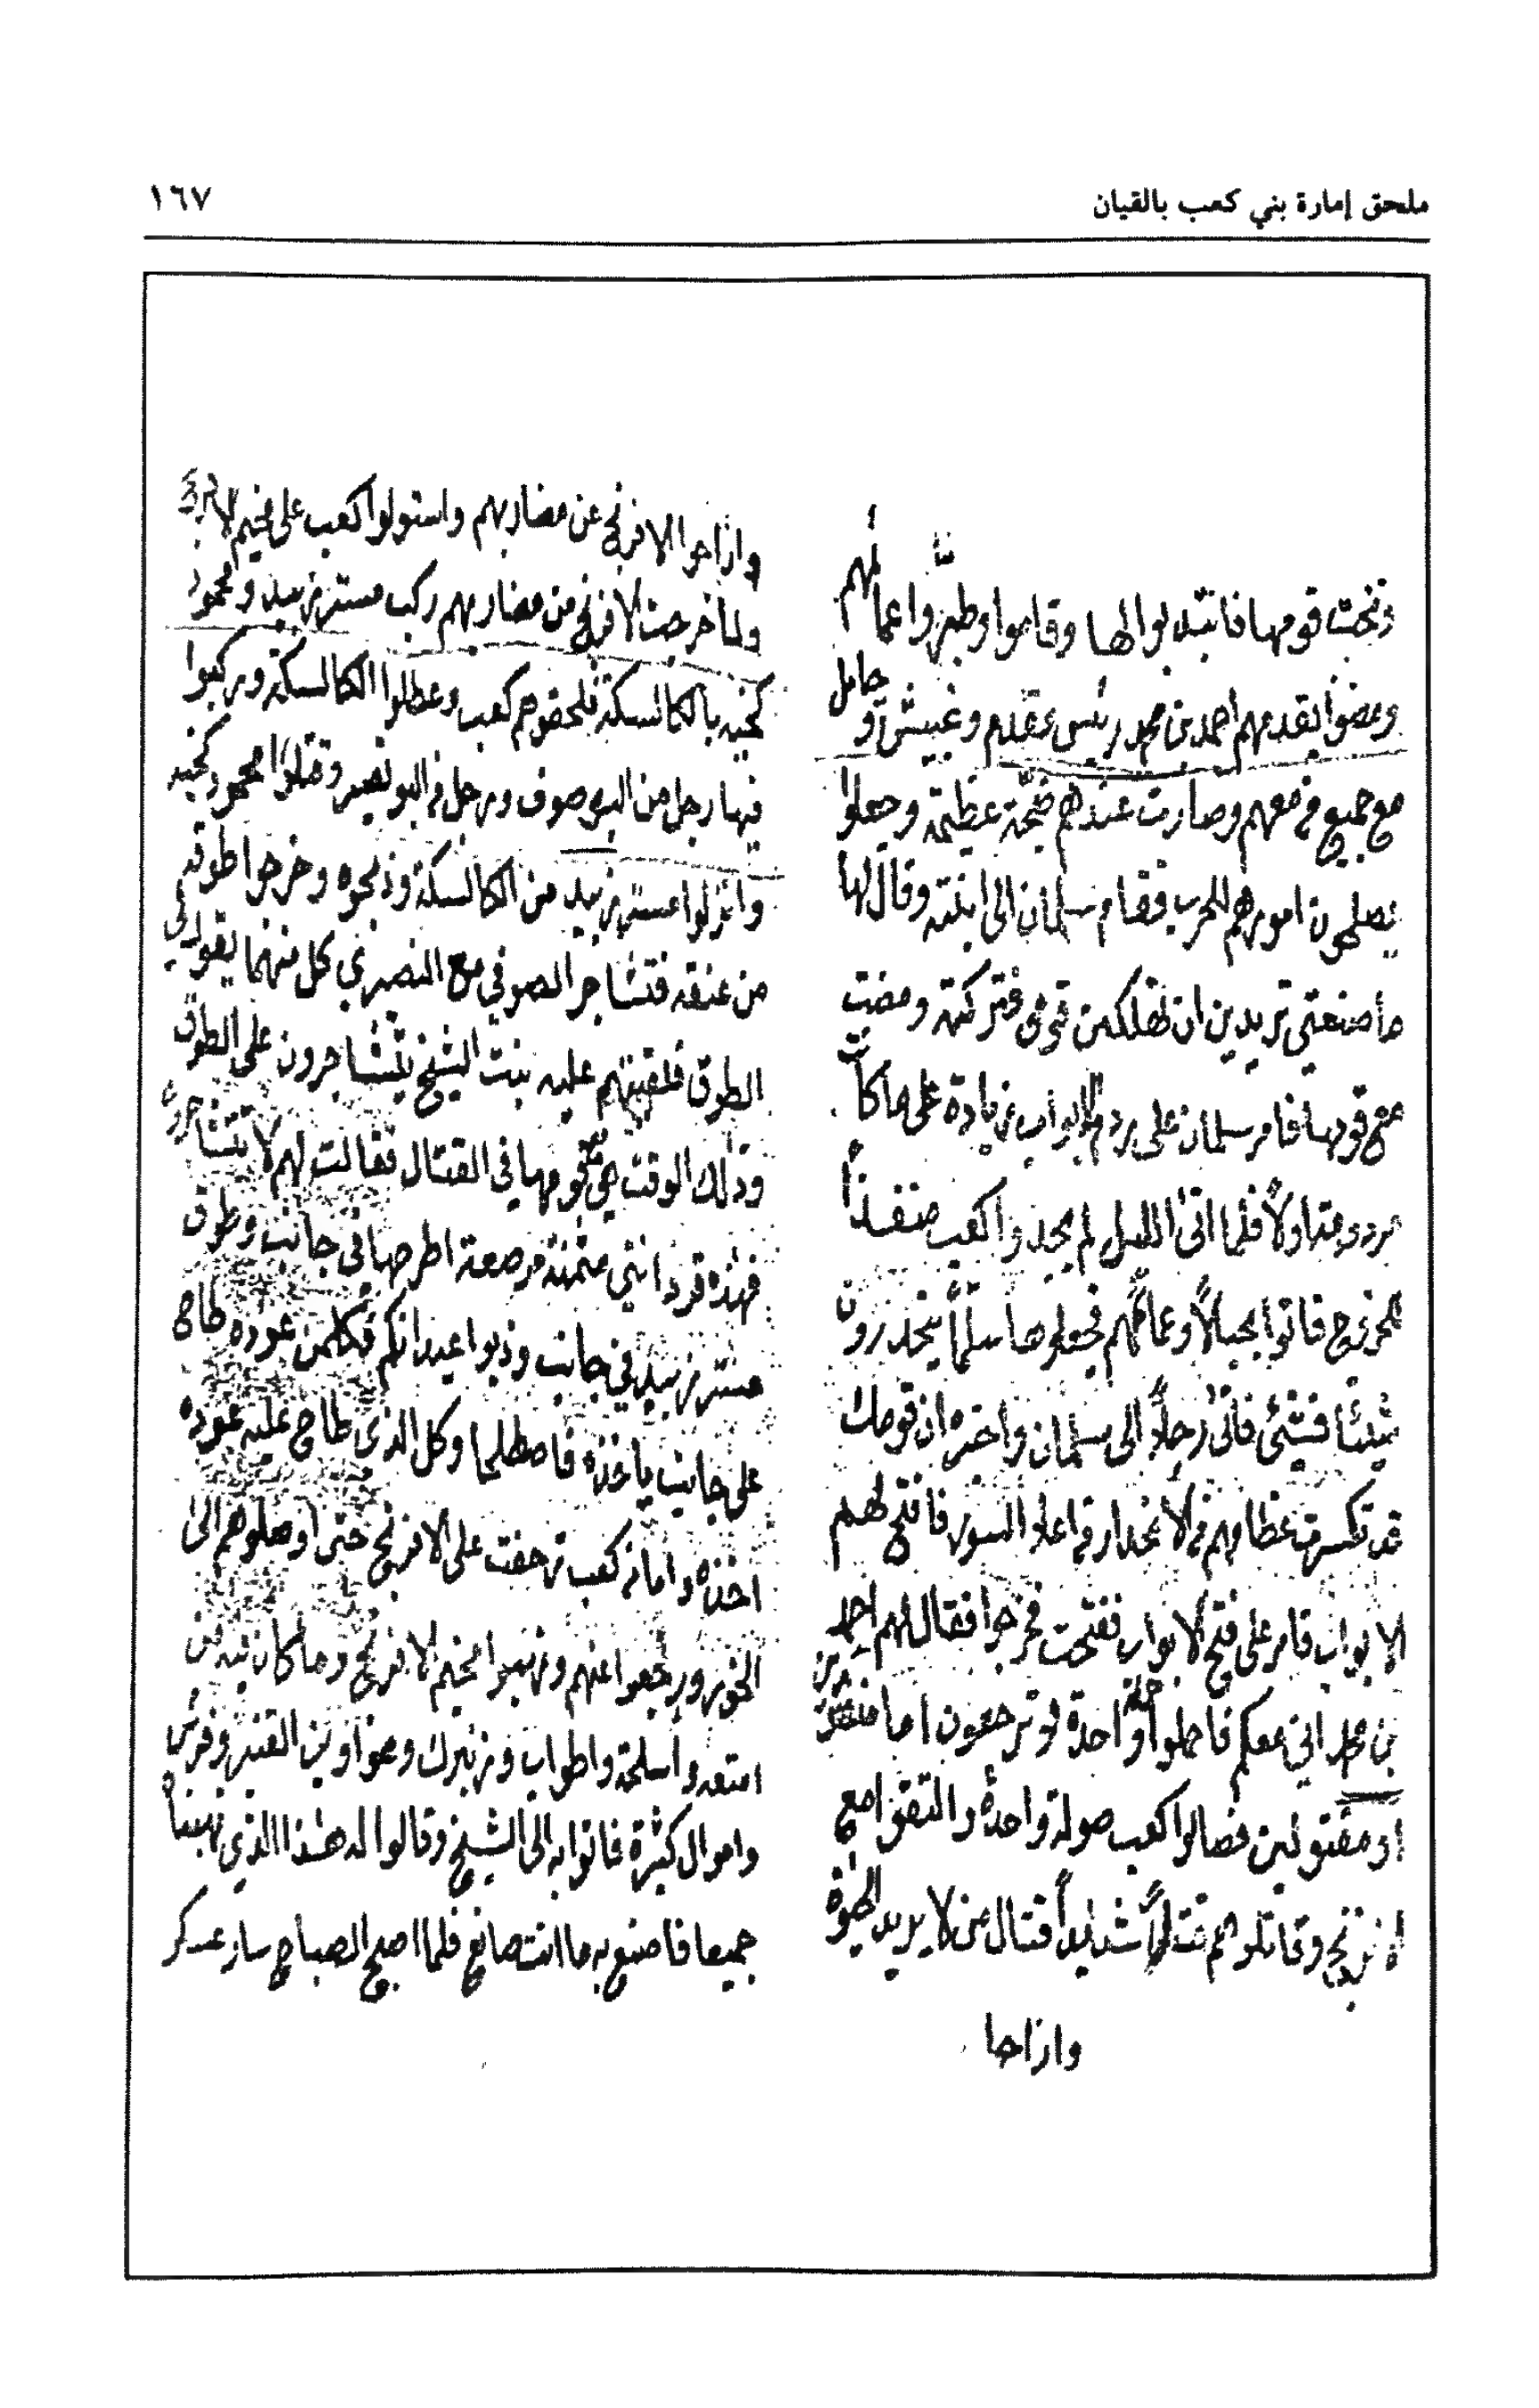 ملحق إمارة بني كعب بالقبان
١٦٧
ونخت قومها فانتدبوا لها وقاموا وطبّروا عمائمهم
ومضوا يقدمهم احمد بن محمد رئيس مقدم وغبيش و حامل
مع جميع معهم وصارت عندهم ضجّة عظيمة وجعلوا
يصلحون امورهم للحرب فقام سلمان الى ابنته وقال لها
ما صنعتي تريدين ان تهلكين قومي فتركته ومضت
مع قومها فامر سلمان على ردم الابواب زيادة على ما كانت
مردومة اولاً فلما اتى الليل لم يجدوا كعب منفذاً
للخروج فاتوا بحبالاً وعمائمهم فجعلوها سلّماً ينحدرون
شيئا فشيئ فاتى رجلاً الى سلمان واخبره ان قومك
قد تكسرت عظامهم في الانحدار من اعلا السور فافتح لهم
الابواب فامر على فتح الابواب ففتحت فخرجوا فقال لهم احمد
بن محمد اني معكم فاحملوا حملة واحدة او ترجعون اما
او مقتولين فصالوا كعب صولة واحدة والتقوا مع
الافرنج وقاتلوهم قتالاً شديداً قتال من لا يريد الحيوة
وازاحوا
وازاحوا الافرنج عن مضاربهم واستولوا كعب على مخيم الافرنج
ولما خرجت الافرنج من مضاربهم ركب مستر زبيد ومحمود
كخيه بالكالسكة فلحقوهم كعب وعطلوا الكالسكة وركبوا
فيها رجل من البو صوف ورجل من البو نصير وقتلوا محمود كخيه
وانزلوا مستر زبيد من الكالسكة وذبحوه وخرجوا طوقه
من عنقه فتشاجر الصوفي مع النصيري كل منهما يقول لي
الطوق فلقيتهم عليه بنت الشيخ يتشاجرون على الطوق
وذلك الوقت هي قومها في القتال فقالت لهم لا تتشاجروا
فهذه قردانيتي مثمنة مرصعة اطرحها في جانب وطوق
مستر زبيد في جانب وذبوا عيدانكم فكلمن عوده طاح
على جانب ياخذه فاصطلحا وكل الذي طاح عليه عوده
اخذه واما كعب زحفت على الافرنج حتى اوصلوهم الى
الخور ورجعوا عنهم ونهبوا مخيم الافرنج وما كان فيه من
امتعه واسلحة واطواب وزنبرك وصواوين القنبر وفرش
واموال كثيرة فاتوا به الى الشيخ وقالوا له هذا الذي نهبناه
جميعا فاصنع به ما انت صانع فلما اصبح الصباح سار عسكر